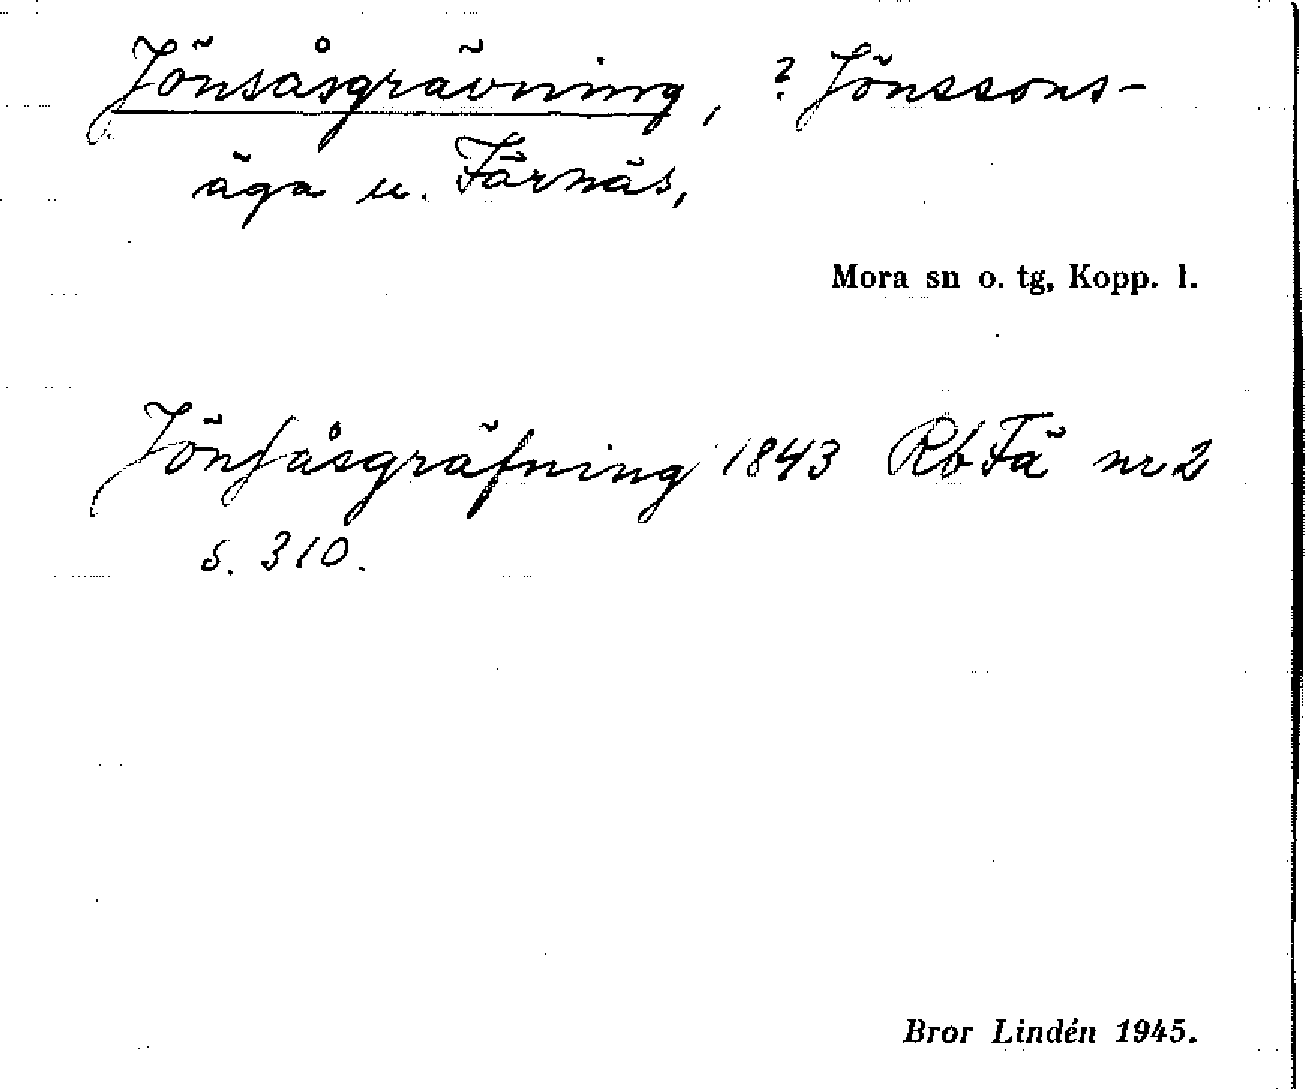 Jönsåsgrävning, ? Jönssons-
äga u. Färnäs,
Mora sn o. tg, Kopp. l.
Jönsåsgräfning 1843 Rb Fä nr 2
s. 310.
Bror Lindén 1945.